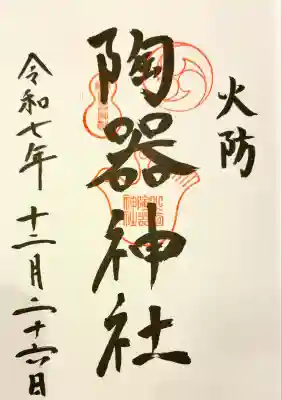 火防
陶器神社
令和七年十二月二十六日